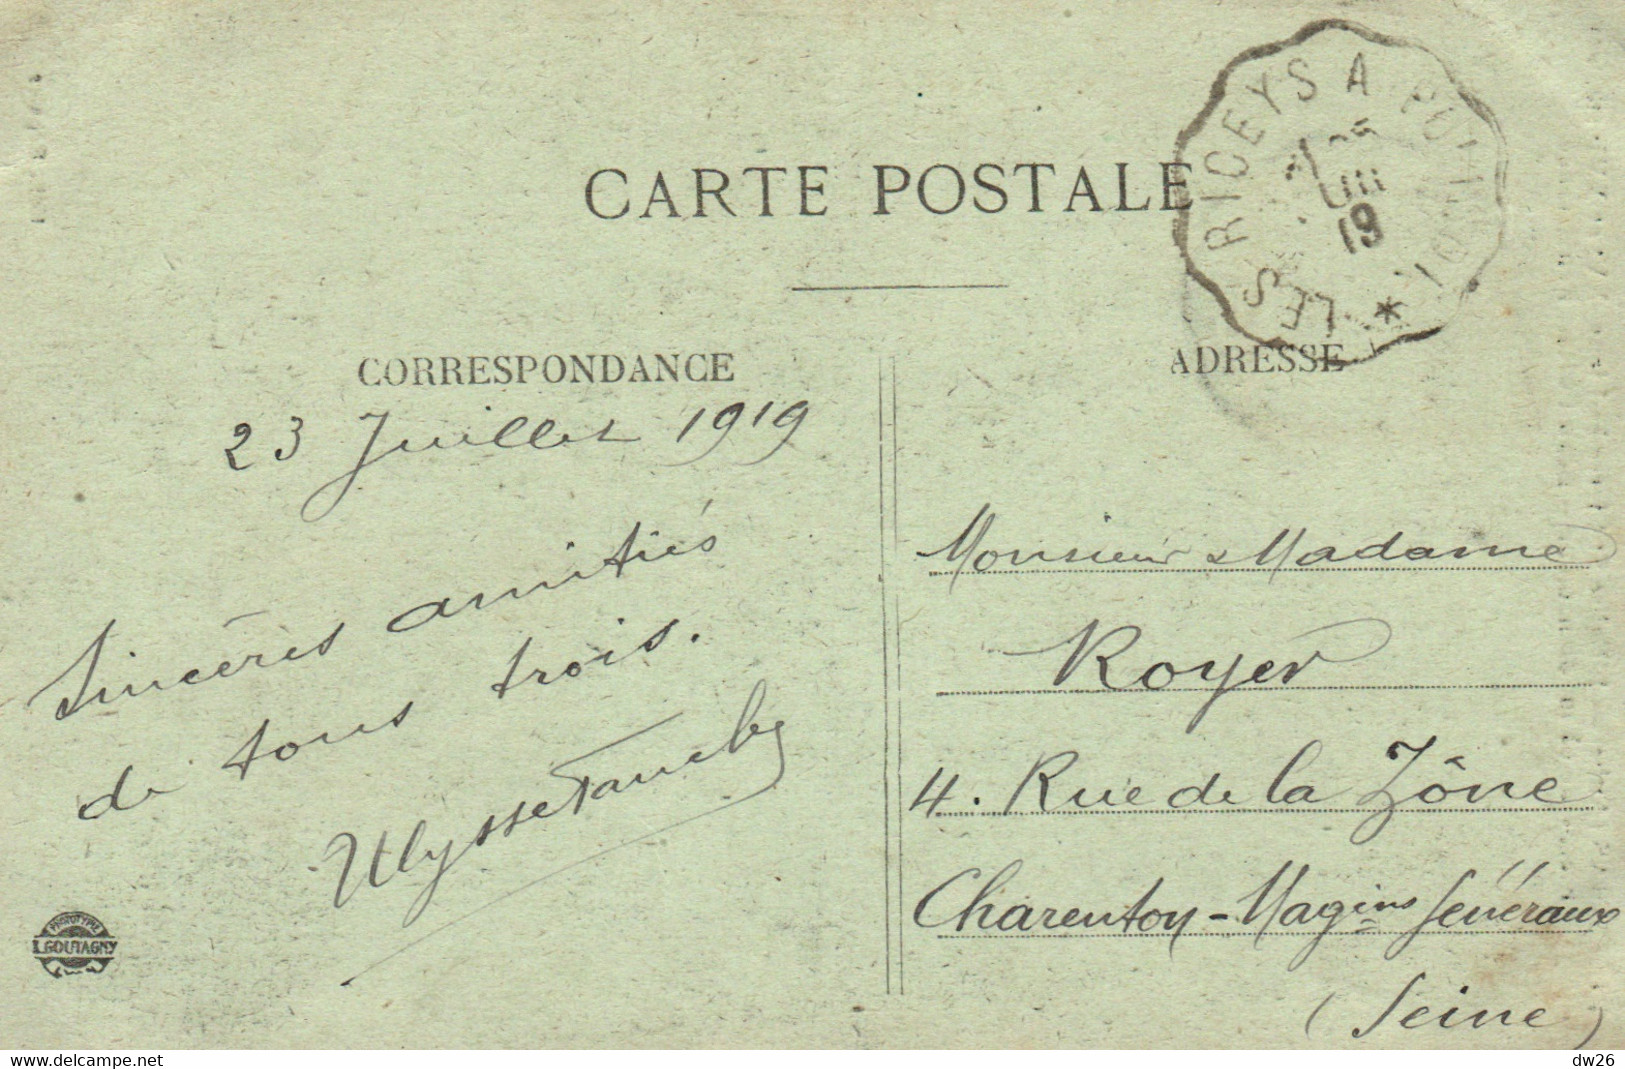 CARTE POSTALE
LES RICEYS A
19
CORRESPONDANCE
ADRESSE
23 Juillet 1919
Sincères amitiés
de tous trois.
Ulysse
Monsieur & Madame
Royer
4. Rue de la Zône
Charenton - Magins Généraux
(Seine)
PHOTOTYPIE
L. GOUTAGNY
delcampe.net
dw26